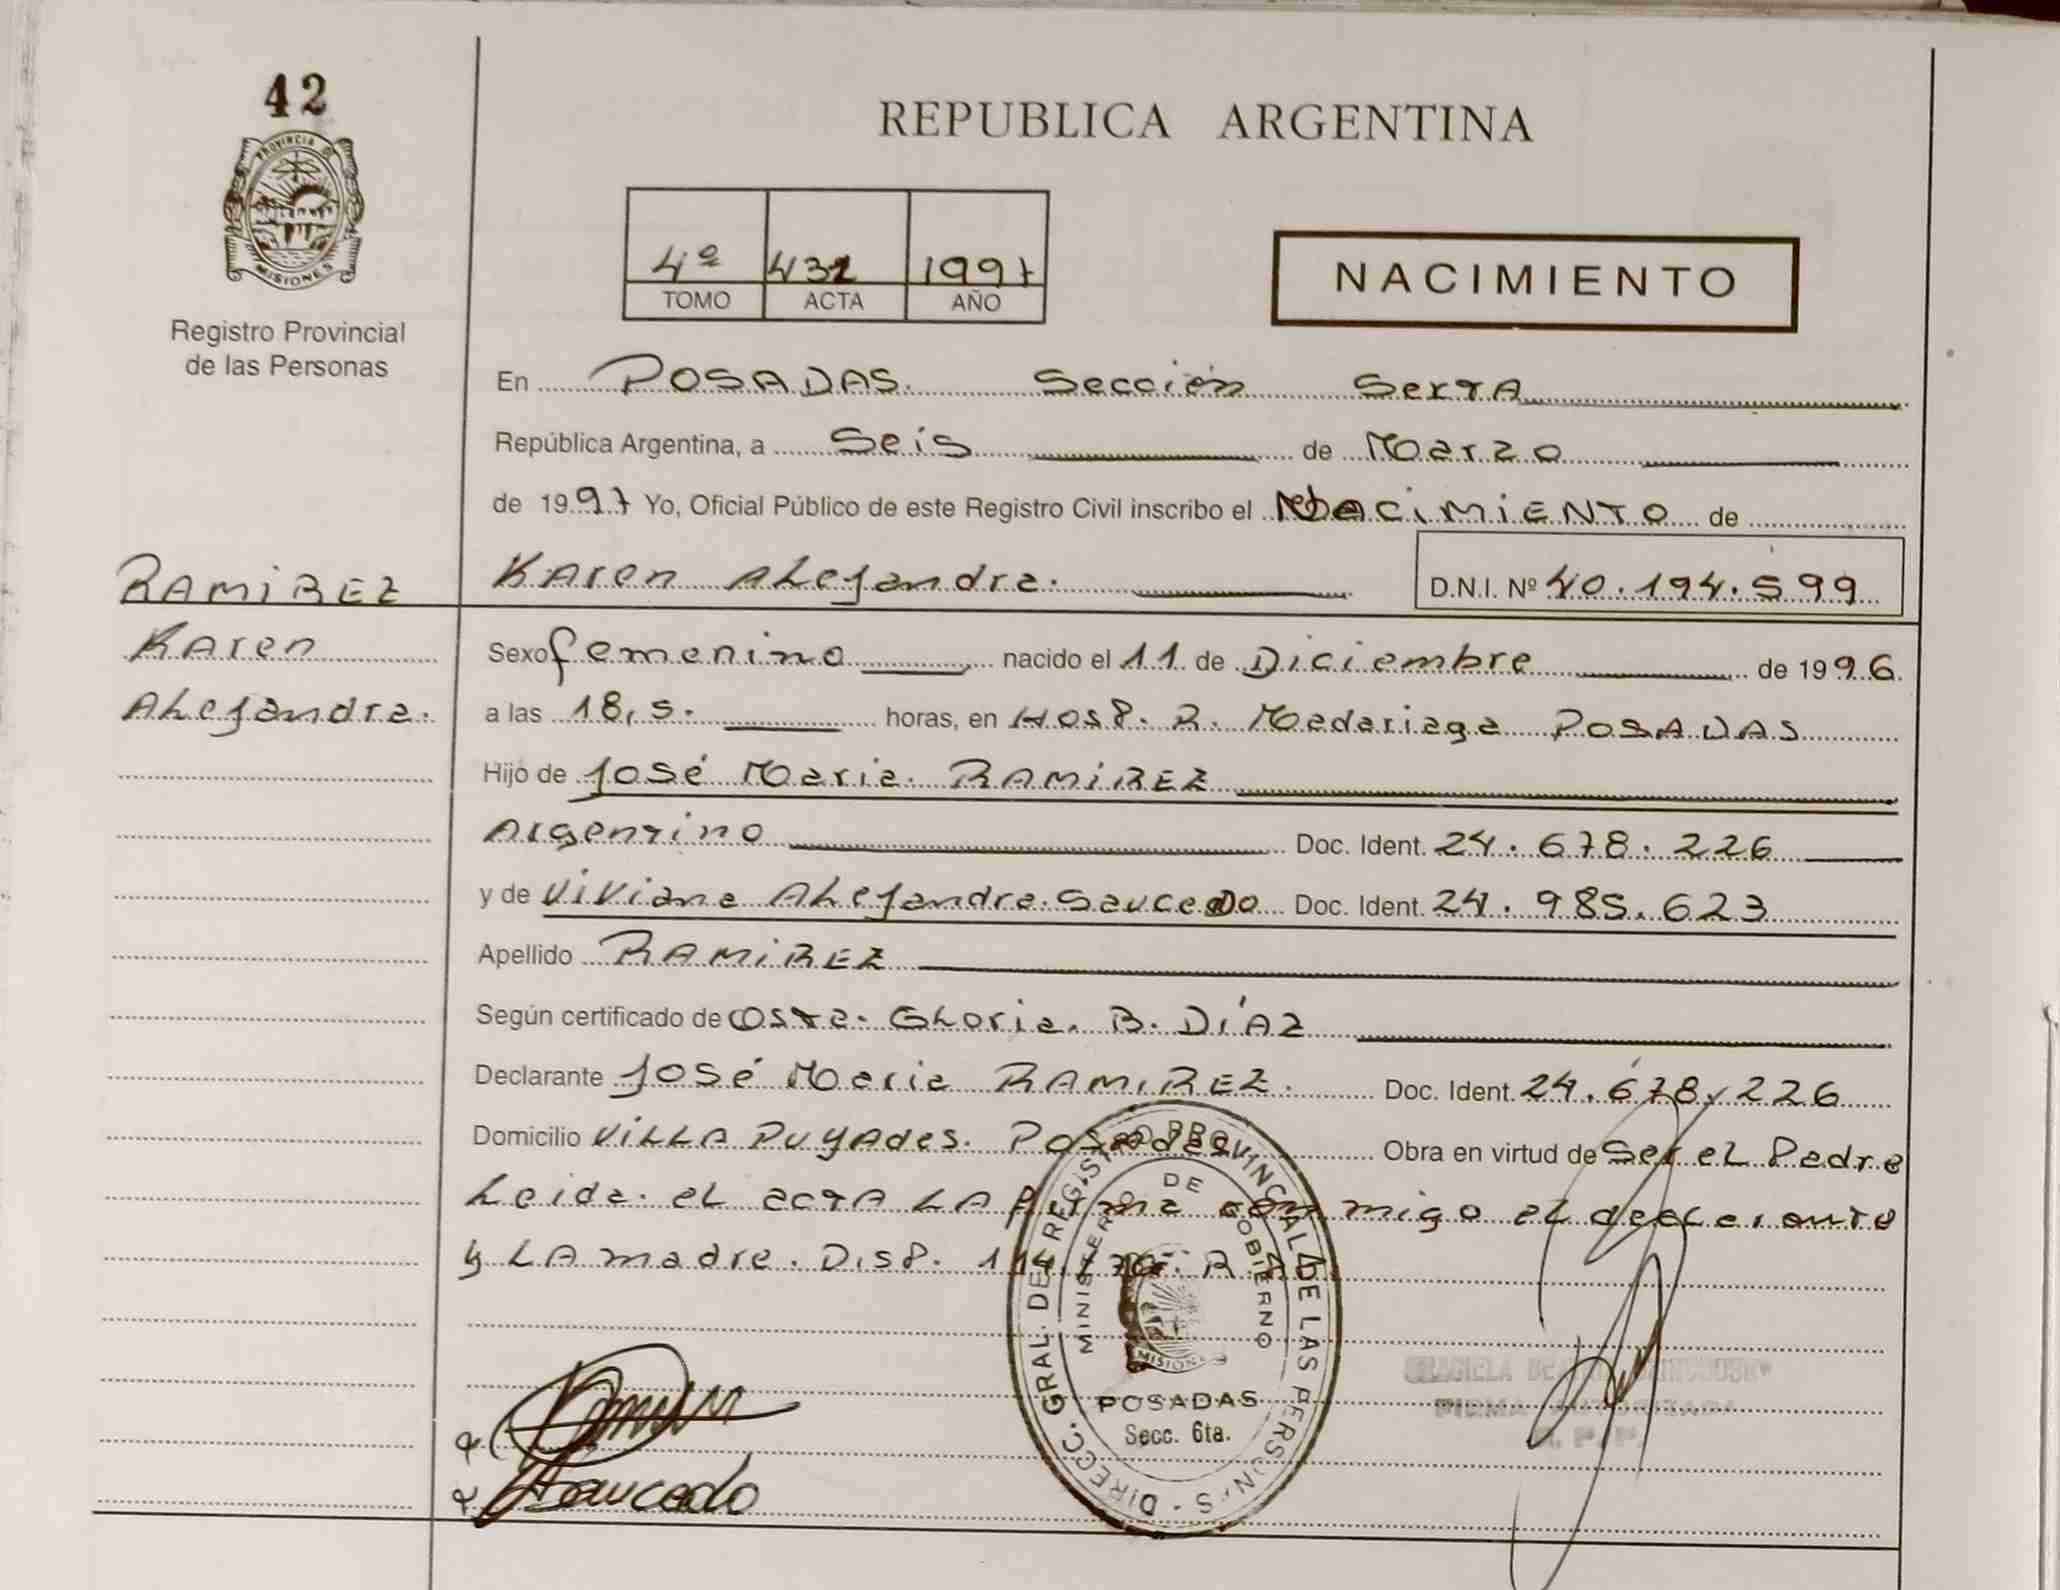 42
PROVINCIA DE
MISIONES
Registro Provincial
de las Personas
REPUBLICA ARGENTINA
4º 432 1997
TOMO ACTA AÑO
NACIMIENTO
En POSADAS. Sección Sexta
República Argentina, a Seis de Marzo
de 1997 Yo, Oficial Público de este Registro Civil inscribo el Nacimiento de
RAMIREZ Karen Alejandra. D.N.I. Nº 40.194.599
Karen
Alejandra.
Sexo femenino nacido el 11 de Diciembre de 1996
a las 18,5. horas, en Hosp. R. Madariaga POSADAS
Hijo de José Maria RAMIREZ
Argentino Doc. Ident. 24.678.226
y de Viviana Alejandra Saucedo Doc. Ident. 24.985.623
Apellido RAMIREZ
Según certificado de Osta. Gloria B. Díaz
Declarante José Maria RAMIREZ. Doc. Ident. 24.678.226
Domicilio Villa Puyades. Posadas. Obra en virtud de Ser el Padre
Leida el acta la firma conmigo el declarante
y la madre. Disp.
DIRECC. GRAL. DE REGISTRO PROVINCIAL DE LAS PERSONAS
MINISTERIO DE GOBIERNO
MISIONES
POSADAS
Secc. 6ta.
Saucedo